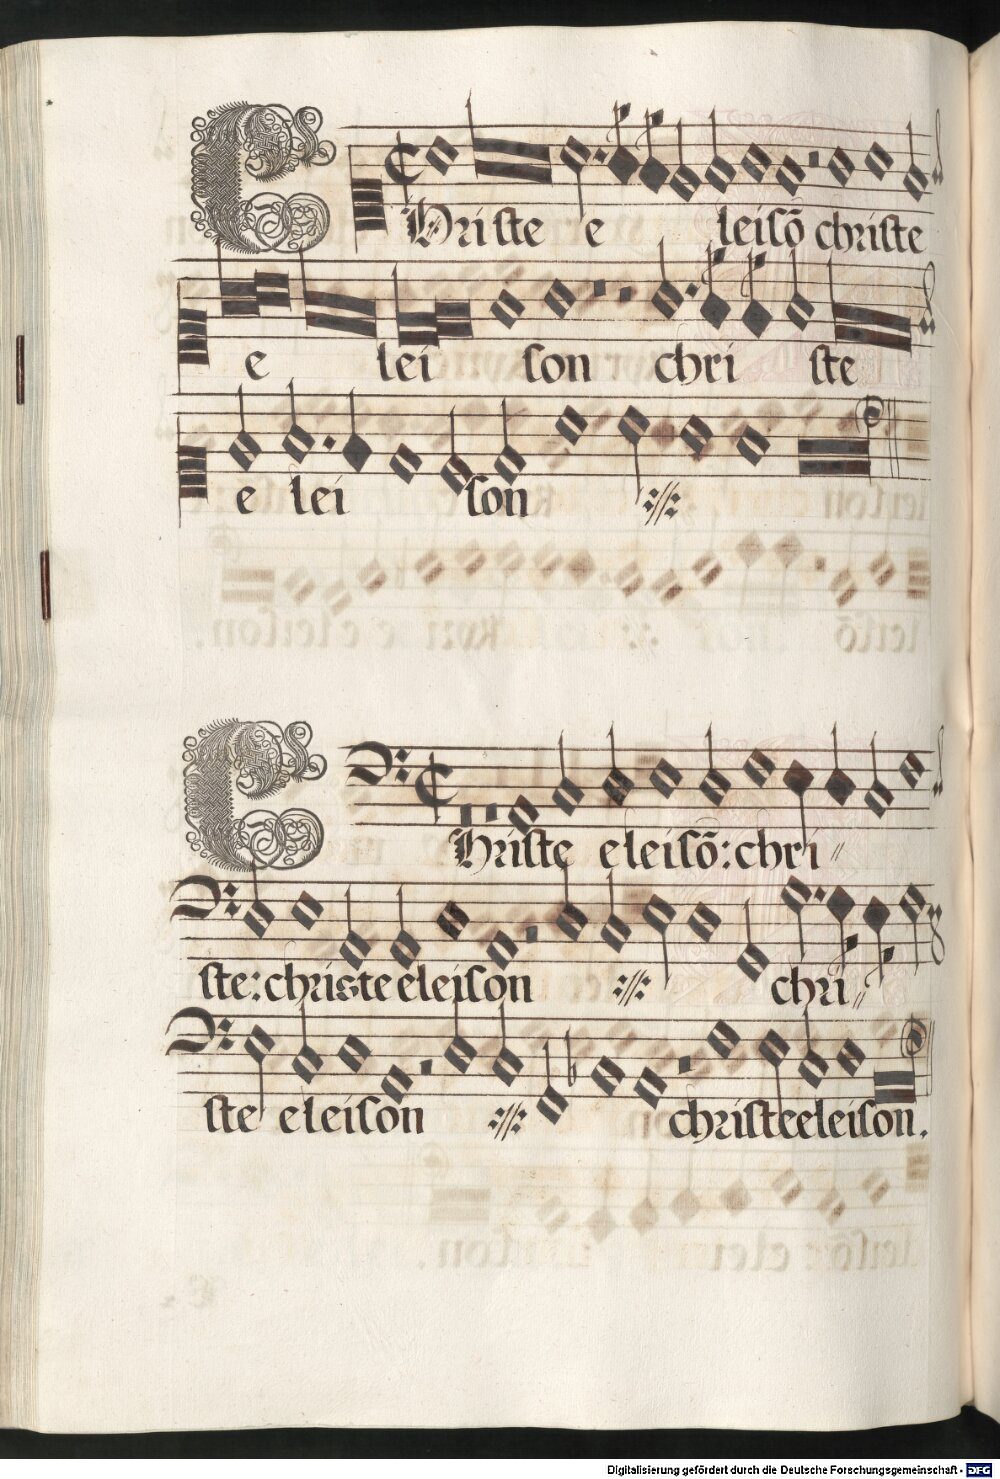 CHriste e leisō christe
e lei son chri ste
e lei son
CHriste eleisō: chri
ste: christe eleison chri
ste eleison christe eleison.
Digitalisierung gefördert durch die Deutsche Forschungsgemeinschaft - DFG